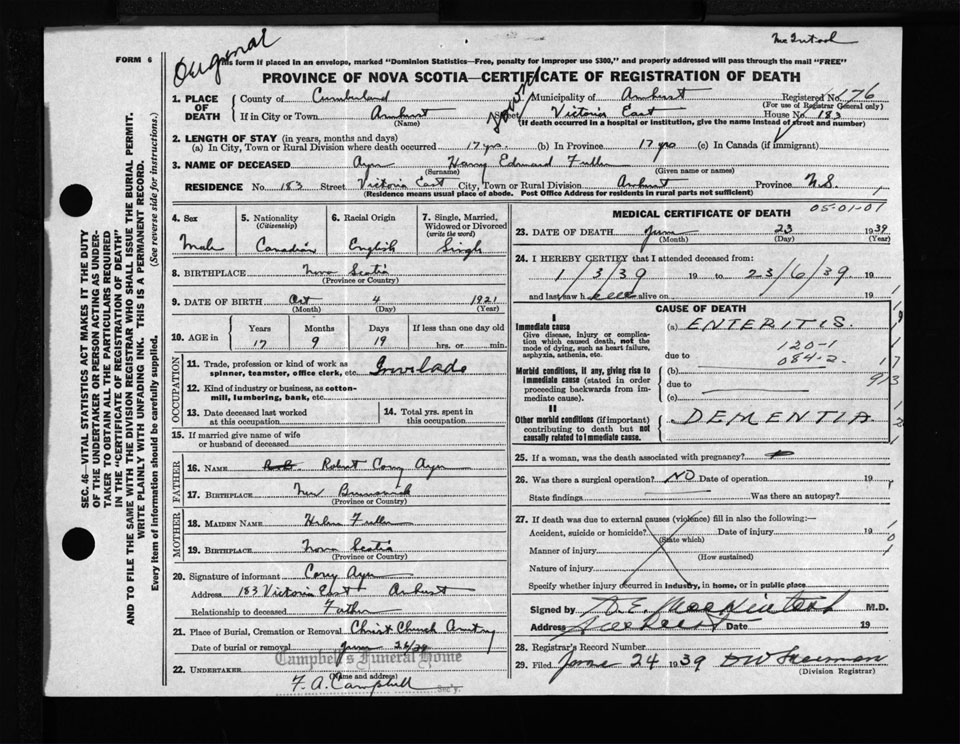 Original
McIntosh
FORM 6
This form if placed in an envelope, marked "Dominion Statistics—Free, penalty for improper use $300," and properly addressed will pass through the mail "FREE"
PROVINCE OF NOVA SCOTIA—CERTIFICATE OF REGISTRATION OF DEATH
1. PLACE OF DEATH
County of Cumberland Municipality of Amherst Registered No. 176
(For use of Registrar General only)
If in City or Town Amherst Street Victoria East House No. 183
(Name) (If death occurred in a hospital or institution, give the name instead of street and number)
2. LENGTH OF STAY (in years, months and days)
(a) In City, Town or Rural Division where death occurred 17 yrs. (b) In Province 17 yrs (c) In Canada (if immigrant)
3. NAME OF DECEASED Ayer Harry Edward Fuller
(Surname) (Given name or names)
RESIDENCE No. 183 Street Victoria East City, Town or Rural Division Amherst Province N.S.
(Residence means usual place of abode. Post Office Address for residents in rural parts not sufficient)
4. Sex 5. Nationality (Citizenship) 6. Racial Origin 7. Single, Married, Widowed or Divorced (write the word)
Male Canadian English Single
8. BIRTHPLACE Nova Scotia
(Province or Country)
9. DATE OF BIRTH Oct 4 1921
(Month) (Day) (Year)
10. AGE in Years Months Days If less than one day old
17 9 19 hrs. or min.
OCCUPATION
11. Trade, profession or kind of work as spinner, teamster, office clerk, etc.
12. Kind of industry or business, as cotton-mill, lumbering, bank, etc.
13. Date deceased last worked at this occupation
14. Total yrs. spent in this occupation
15. If married give name of wife or husband of deceased
FATHER
16. NAME Robert Corey Ayer
17. BIRTHPLACE New Brunswick
(Province or Country)
MOTHER
18. MAIDEN NAME Helen Fuller
19. BIRTHPLACE Nova Scotia
(Province or Country)
20. Signature of informant Corey Ayer
Address 183 Victoria East Amherst
Relationship to deceased Father
21. Place of Burial, Cremation or Removal Christ Church
Date of burial or removal June 26/39
Campbell's Funeral Home
22. UNDERTAKER
(Name and address)
F. A. Campbell Sec'y.
MEDICAL CERTIFICATE OF DEATH
05-01-01
23. DATE OF DEATH June 23 1939
(Month) (Day) (Year)
24. I HEREBY CERTIFY that I attended deceased from:
1/3/39 19 to 23/6/39 19
and last saw h alive on 19
CAUSE OF DEATH
I
Immediate cause
Give disease, injury or complication which caused death, not the mode of dying, such as heart failure, asphyxia, asthenia, etc.
(a) ENTERITIS.
120-1
due to 084-2
Morbid conditions, if any, giving rise to immediate cause (stated in order proceeding backwards from immediate cause).
(b)
due to
(c)
II
Other morbid conditions (if important) contributing to death but not causally related to immediate cause.
DEMENTIA
25. If a woman, was the death associated with pregnancy?
26. Was there a surgical operation? NO Date of operation 19
State findings Was there an autopsy?
27. If death was due to external causes (violence) fill in also the following:—
Accident, suicide or homicide? Date of injury 19
(State which)
Manner of injury
(How sustained)
Nature of injury
Specify whether injury occurred in industry, in home, or in public place
Signed by D.E. MacKintosh M.D.
Address Amherst Date 19
28. Registrar's Record Number
29. Filed June 24 1939
(Division Registrar)
SEC. 46—VITAL STATISTICS ACT MAKES IT THE DUTY
OF THE UNDERTAKER OR PERSON ACTING AS UNDER-
TAKER TO OBTAIN ALL THE PARTICULARS REQUIRED
IN THE "CERTIFICATE OF REGISTRATION OF DEATH"
AND TO FILE THE SAME WITH THE DIVISION REGISTRAR WHO SHALL ISSUE THE BURIAL PERMIT.
WRITE PLAINLY WITH UNFADING INK. THIS IS A PERMANENT RECORD.
Every item of information should be carefully supplied. (See reverse side for instructions.)